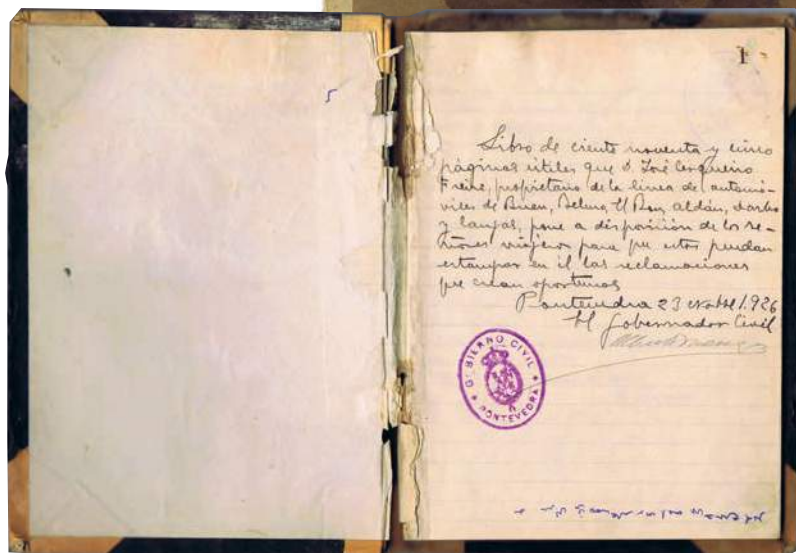 5
1
Libro de ciento noventa y cinco
páginas útiles que D. José Cerqueiro
Freire, propietario de la linea de automó-
viles de Bueu, Beluso, El Bon, Aldán, Darbo
y Cangas, pone a disposición de los se-
ñores viajeros para que estos puedan
estampar en él las reclamaciones
que crean oportunas
Pontevedra 23 1.926
El Gobernador Civil
GOBIERNO CIVIL
PONTEVEDRA